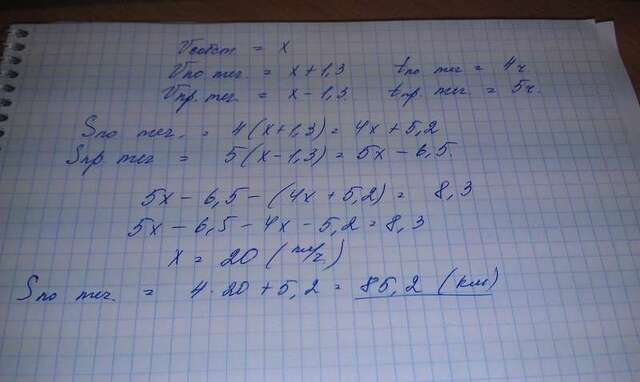 Vсобст. = x
Vпо теч. = x + 1,3 tпо теч = 4ч
Vпр. теч. = x - 1,3 tпр. теч = 5ч.
Sпо теч. = 4(x+1,3) = 4x + 5,2
Sпр. теч = 5(x-1,3) = 5x - 6,5.
5x - 6,5 - (4x + 5,2) = 8,3
5x - 6,5 - 4x - 5,2 = 8,3
x = 20 (км/ч)
Sпо теч. = 4 · 20 + 5,2 = 85,2 (км)